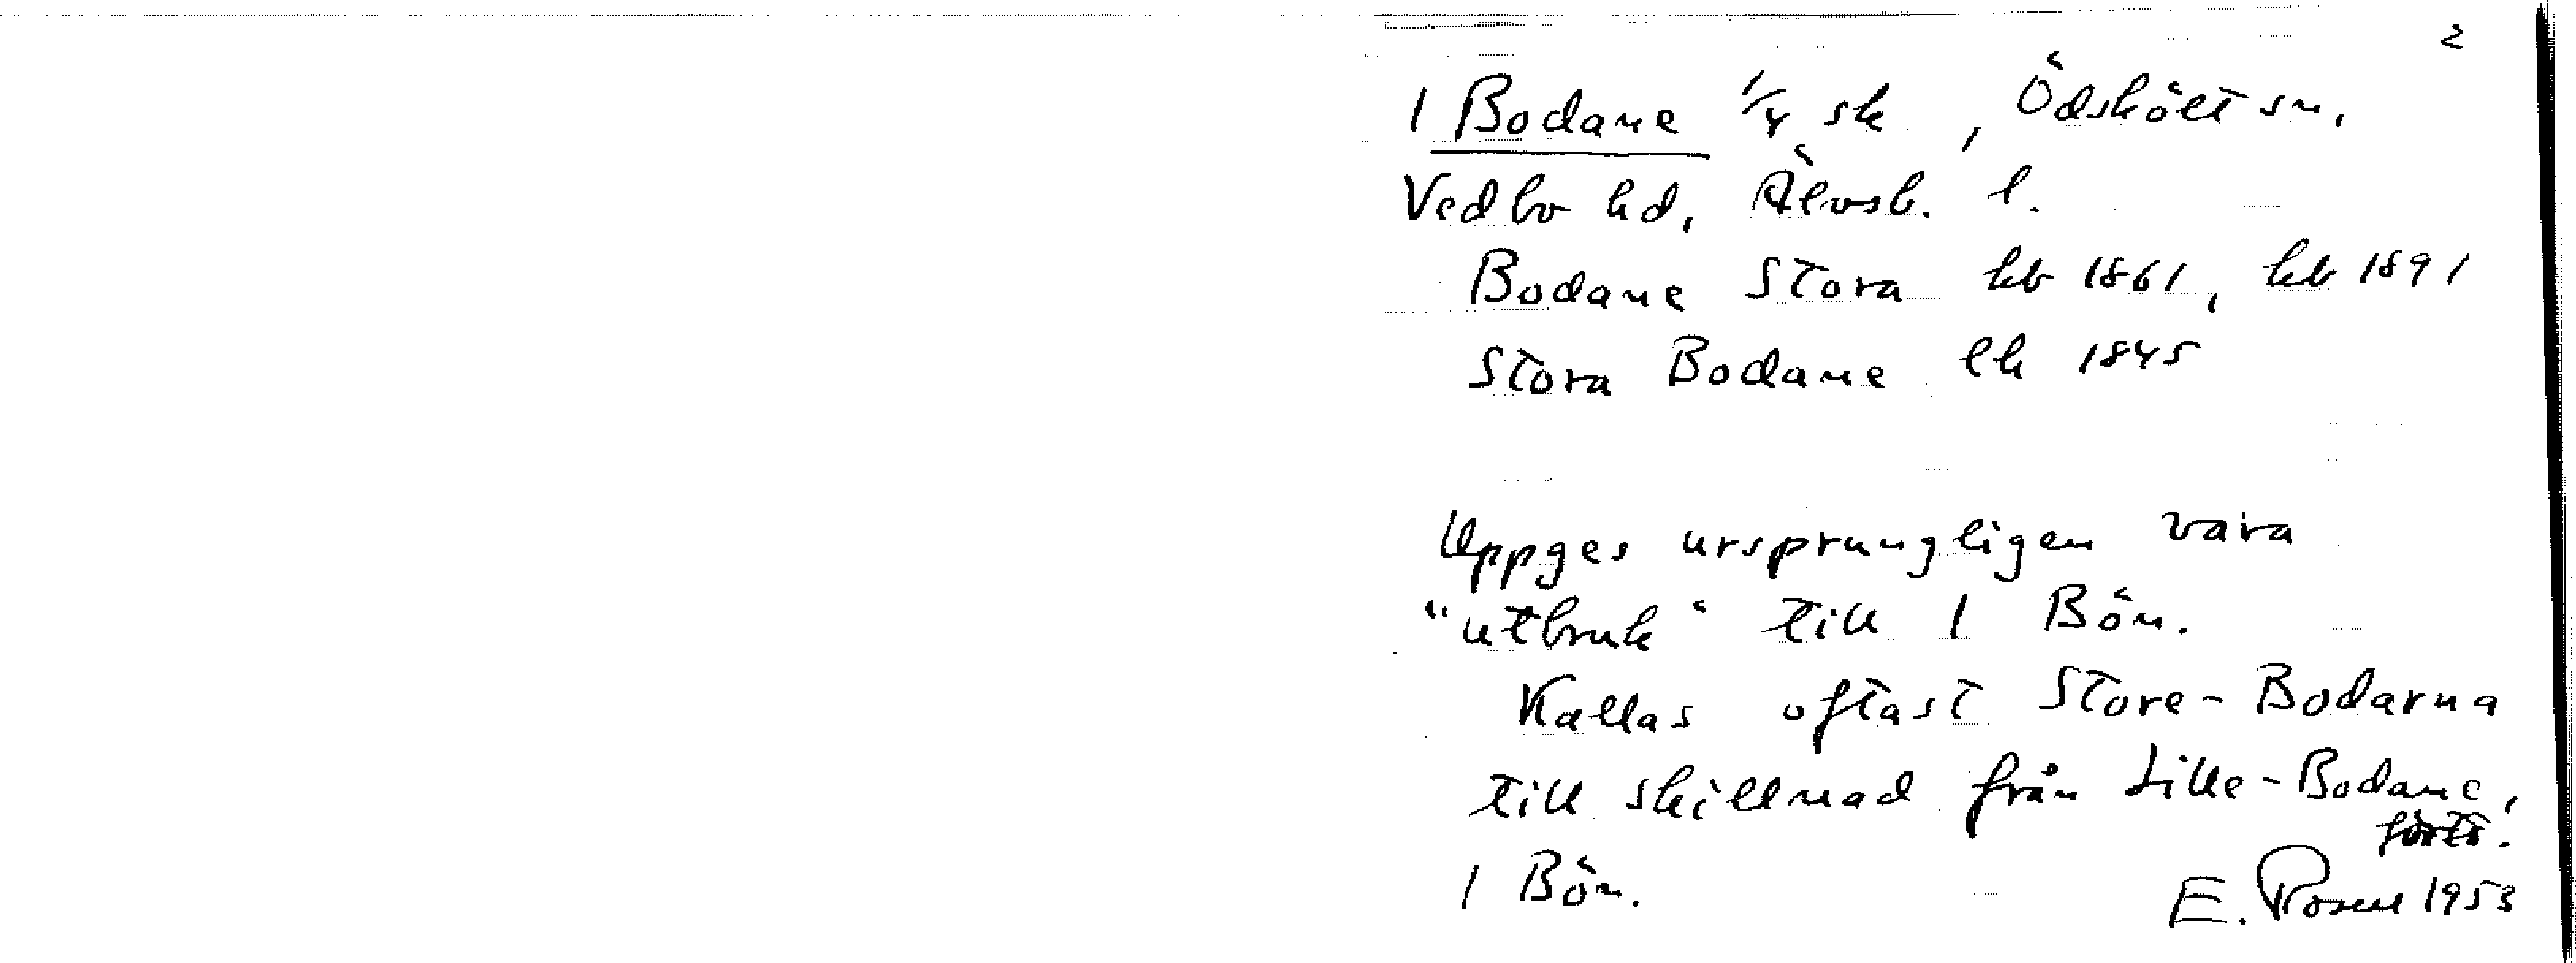 2
1 Bodane 1/4 sk, Ödskölt sn,
Vedbo hd, Älvsb. l.
Bodane Stora kb 1861, kb 1891
Stora Bodane ek 1845
Uppges ursprungligen vara
"utbruk" till 1 Bön.
Kallas oftast Store-Bodarna
till skillnad från Lille-Bodane,
1 Bön.
E. Rosell 1953